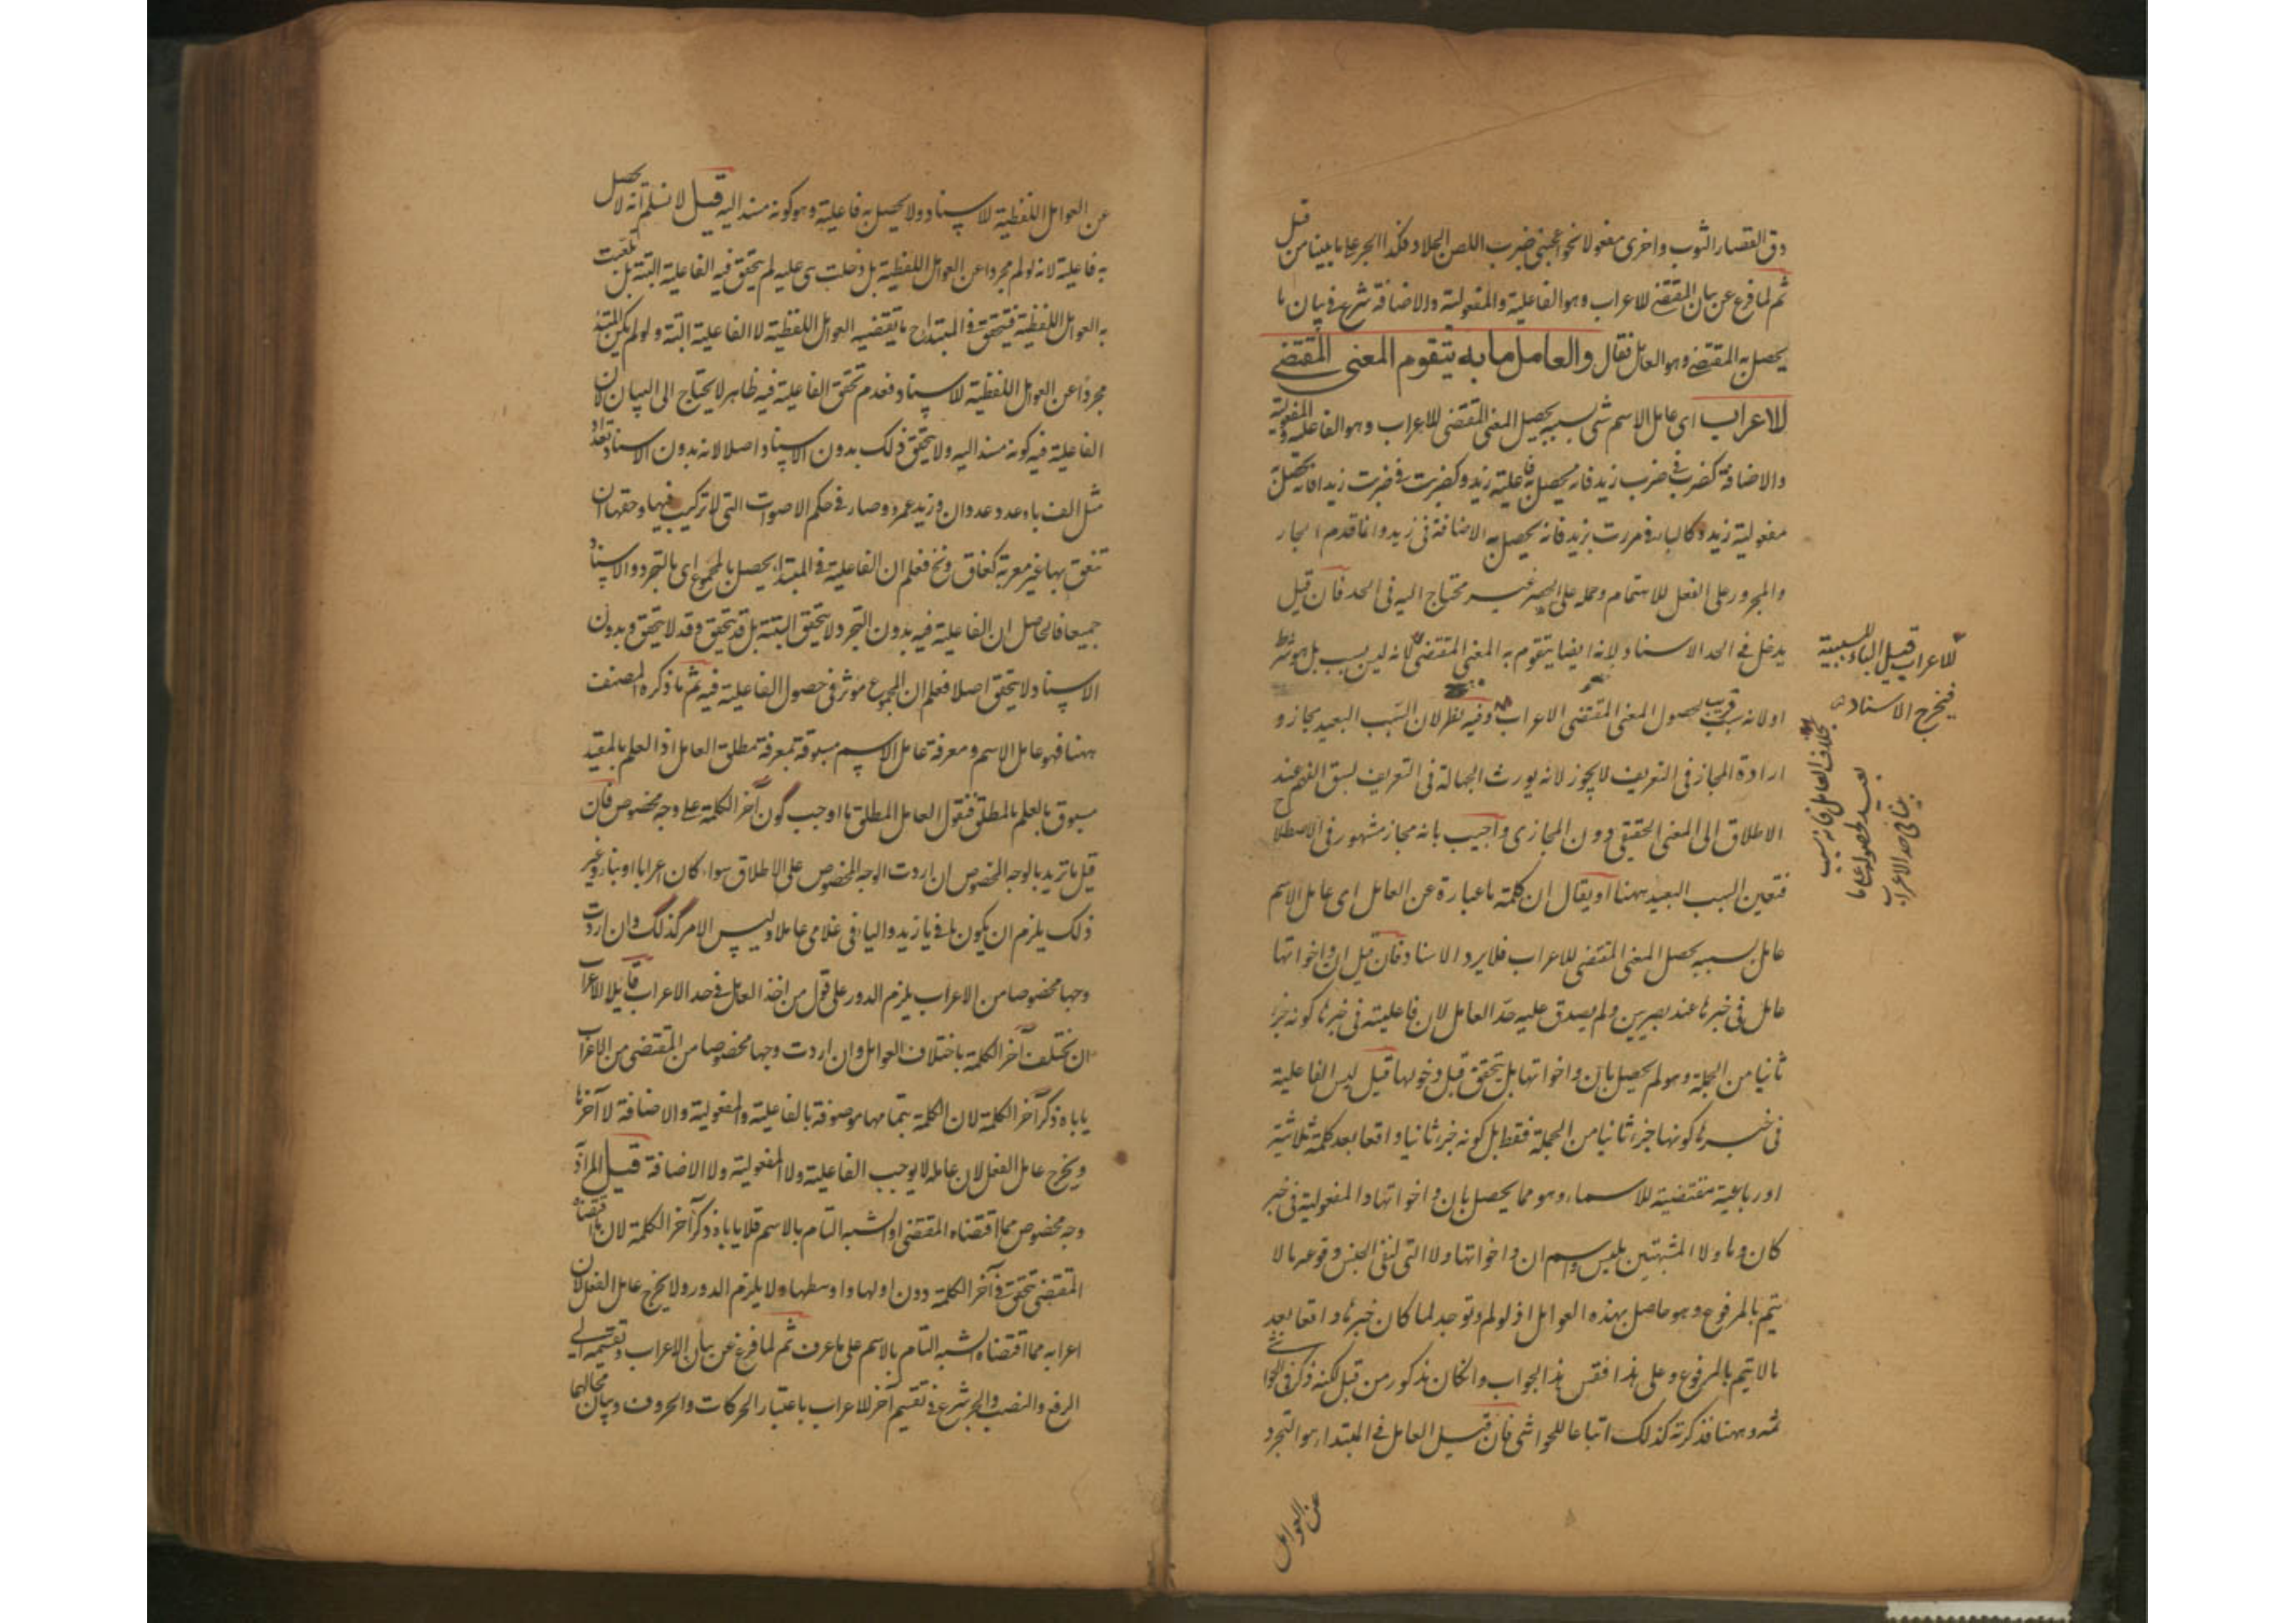 دق القصار الثوب واخرى مفعولا نحو اعجبنى ضرب اللص الجلاد فكذا الجر على ما بينا من قبل
ثم لما فرغ عن بيان المقتضى للاعراب وهو الفاعلية والمفعولية والاضافة شرع فى بيان ما
يحصل به المقتضى وهو العامل فقال والعامل ما به يتقوم المعنى المقتضى
للاعراب اى عامل الاسم شئ بسببه يحصل المعنى المقتضى للاعراب وهو الفاعلية والمفعولية
والاضافة كضرب فى ضرب زيد فانه يحصل به فاعلية زيد وكضربت فى ضربت زيدا فانه تحصل
مفعولية زيد وكالباء فى مررت بزيد فانه يحصل به الاضافة فى زيد وانما قدم الجار
والمجرور على الفعل للاهتمام وحمله على الحصر غير محتاج اليه فى الحد فان قيل
يدخل فى الحد الاسناد لانه ايضا يتقوم به المعنى المقتضى لانه ليس بسبب بل هو شرط
او لانه سبب قريب لحصول المعنى المقتضى الاعراب وفيه نظر لان السبب البعيد مجاز و
ارادة المجاز فى التعريف لا يجوز لانه يورث الجهالة فى التعريف لسبق الفهم عند
الاطلاق الى المعنى الحقيقى دون المجازى واجيب بانه مجاز مشهور فى الاصطلاح
فتعين السبب البعيد ههنا او يقال ان كلمة ما عبارة عن العامل اى عامل الاسم
عامل بسببه يحصل المعنى المقتضى للاعراب فلا يرد الاسناد فان قيل ان واخواتها
عامل فى خبرها عند بصريين ولم يصدق عليه حد العامل لان فاعليته فى خبرها كونه جزء
ثانيا من الجملة وهو لم يحصل بان واخواتها بل يتحقق قبل دخولها قيل ليس الفاعلية
فى خبرها كونها جزء ثانيا من الجملة فقط بل كونه جزء ثانيا واقعا بعد كلمة ثلاثية
او رباعية مقتضية للاسماء وهو مما يحصل بان واخواتها والمفعولية فى خبر
كان وما ولا المشبهتين بليس واسم ان واخواتها ولا التى لنفى الجنس وقوعه بما لا
يتم بالمرفوع وهو حاصل بهذه العوامل اذ لو لم توجد لما كان خبرها واقعا بعد
ما لا يتم بالمرفوع وعلى هذا فقس هذا الجواب وان كان مذكور من قبل لكنه ذكر فى الحواشى
ثمه وههنا فذكرته كذلك اتباعا للحواشى فان قيل العامل فى المبتدا هو التجرد
عن العوامل
للاعراب قيل الباء للسببية
فيخرج الاسناد
بخلاف العامل فانه سبب
بعيد لحصوله على ما
بينا فى حد الاعراب
عن العوامل اللفظية للاسناد ولا يحصل به فاعلية وهو كونه مسندا اليه قيل لا نسلم انه لا يحصل
به فاعلية لانه لو لم مجردا عن العوامل اللفظية بل دخلت هى عليه لم يتحقق فيه الفاعلية البتة بل
به العوامل اللفظية فيتحقق فى المبتدا ح ما يقتضيه العوامل اللفظية لا الفاعلية البتة ولو لم يكن المبتدا
مجردا عن العوامل اللفظية للاسناد فعدم تحقق الفاعلية فيه ظاهر لا يحتاج الى البيان لان
الفاعلية فيه كونه مسندا اليه ولا يتحقق ذلك بدون الاسناد اصلا لانه بدون الاسناد تعداد
مثل الف با وعدد عدوان وزيد عمرو وصار فى حكم الاصوات التى لا تركيب فيها وحقها ان
تنعق بها غير معربة كغاق ونخ فعلم ان الفاعلية فى المبتدا يحصل بالمجموع اى بالتجرد والاسناد
جميعا فالحاصل ان الفاعلية فيه بدون التجرد لا يتحقق البتة بل قد يتحقق وقد لا يتحقق وبدون
الاسناد لا يتحقق اصلا فعلم ان المجموع مؤثر فى حصول الفاعلية فيه ثم ما ذكره المصنف
ههنا فهو عامل الاسم ومعرفة عامل الاسم مسبوقة بمعرفة مطلق العامل اذ العلم بالمقيد
مسبوق بالعلم بالمطلق فنقول العامل المطلق ما اوجب كون آخر الكلمة على وجه مخصوص فان
قيل ما تريد بالوجه المخصوص ان اردت الوجه المخصوص على الاطلاق سواء كان اعرابا او بناء وغير
ذلك يلزم ان يكون يا فى يا زيد والياء فى غلامى عاملا وليس الامر كذلك وان اردت
وجها مخصوصا من الاعراب يلزم الدور على قول من اخذ العامل فى حد الاعراب قائلا الاعراب
ان يختلف آخر الكلمة باختلاف العوامل وان اردت وجها مخصوصا من المقتضى من الاعراب
ياباه ذكر آخر الكلمة لان الكلمة بتمامها موصوفة بالفاعلية والمفعولية والاضافة لا آخرها
ويخرج عامل الفعل لان عامله لا يوجب الفاعلية ولا المفعولية ولا الاضافة قيل المراد
وجه مخصوص مما اقتضاه المقتضى او الشبه التام بالاسم فلا ياباه ذكر آخر الكلمة لان ما اقتضاه
المقتضى يتحقق فى آخر الكلمة دون اولها واوسطها ولا يلزم الدور ولا يخرج عامل الفعل لان
اعرابه مما اقتضاه الشبه التام بالاسم على ما عرف ثم لما فرغ عن بيان الاعراب وتقسيمه الى
الرفع والنصب والجر شرع فى تقسيم آخر للاعراب باعتبار الحركات والحروف وبيان محالهما